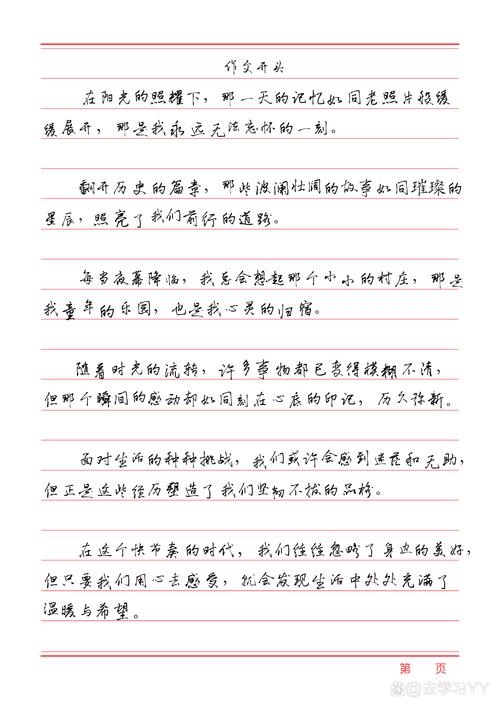 作文开头
在阳光的照耀下，那一天的记忆如同老照片般缓
缓展开，那是我永远无法忘怀的一刻。
翻开历史的篇章，那些波澜壮阔的故事如同璀璨的
星辰，照亮了我们前行的道路。
每当夜幕降临，我总会想起那个小小的村庄，那是
我童年的乐园，也是我心灵的归宿。
随着时光的流转，许多事物都已变得模糊不清，
但那个瞬间的感动却如同刻在心底的印记，历久弥新。
面对生活的种种挑战，我们或许会感到迷茫和无助，
但正是这些经历塑造了我们坚韧不拔的品格。
在这个快节奏的时代，我们往往忽略了身边的美好，
但只要我们用心去感受，就会发现生活中处处充满了
温暖与希望。
第 页
@去学习YY